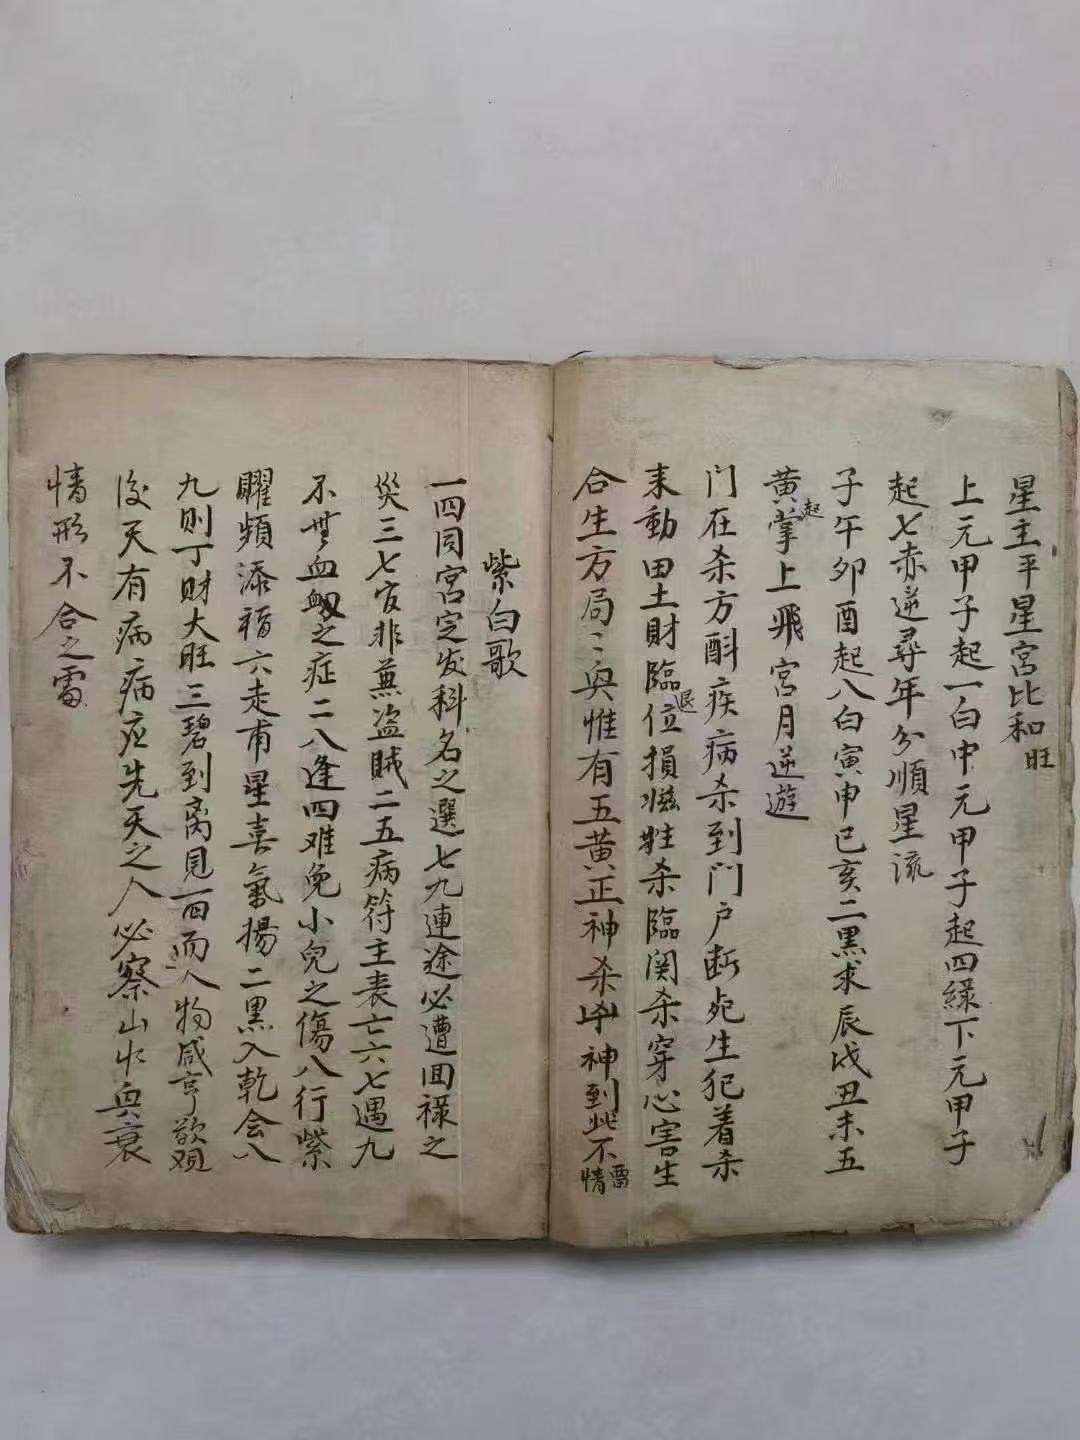 星主平星宮比和旺
上元甲子起一白中元甲子起四緑下元甲子
起七赤逆尋年分順星流
子午卯酉起八白寅申巳亥二黑求辰戌丑未五
黄起掌上飛宮月逆遊
门在杀方斟疾病杀到门户断死生犯着杀
耒動田土財臨退位損滋牲杀臨関杀穿心害生
合生方局〻興惟有五黄正神杀凶神到此不
留情
紫白歌
一四同宮定发科名之選七九連途必遭回禄之
災三七官非兼盗賊二五病符主丧亡六七遇九
不無血刄之症二八逢四难免小兒之傷八行紫
曜頻添福六走甫星喜氣揚二黑入乾会八
九則丁財大旺三碧到离見一四而人物咸亨欲观
後天有病病应先天之人必察山水興衰
情形不合之雷